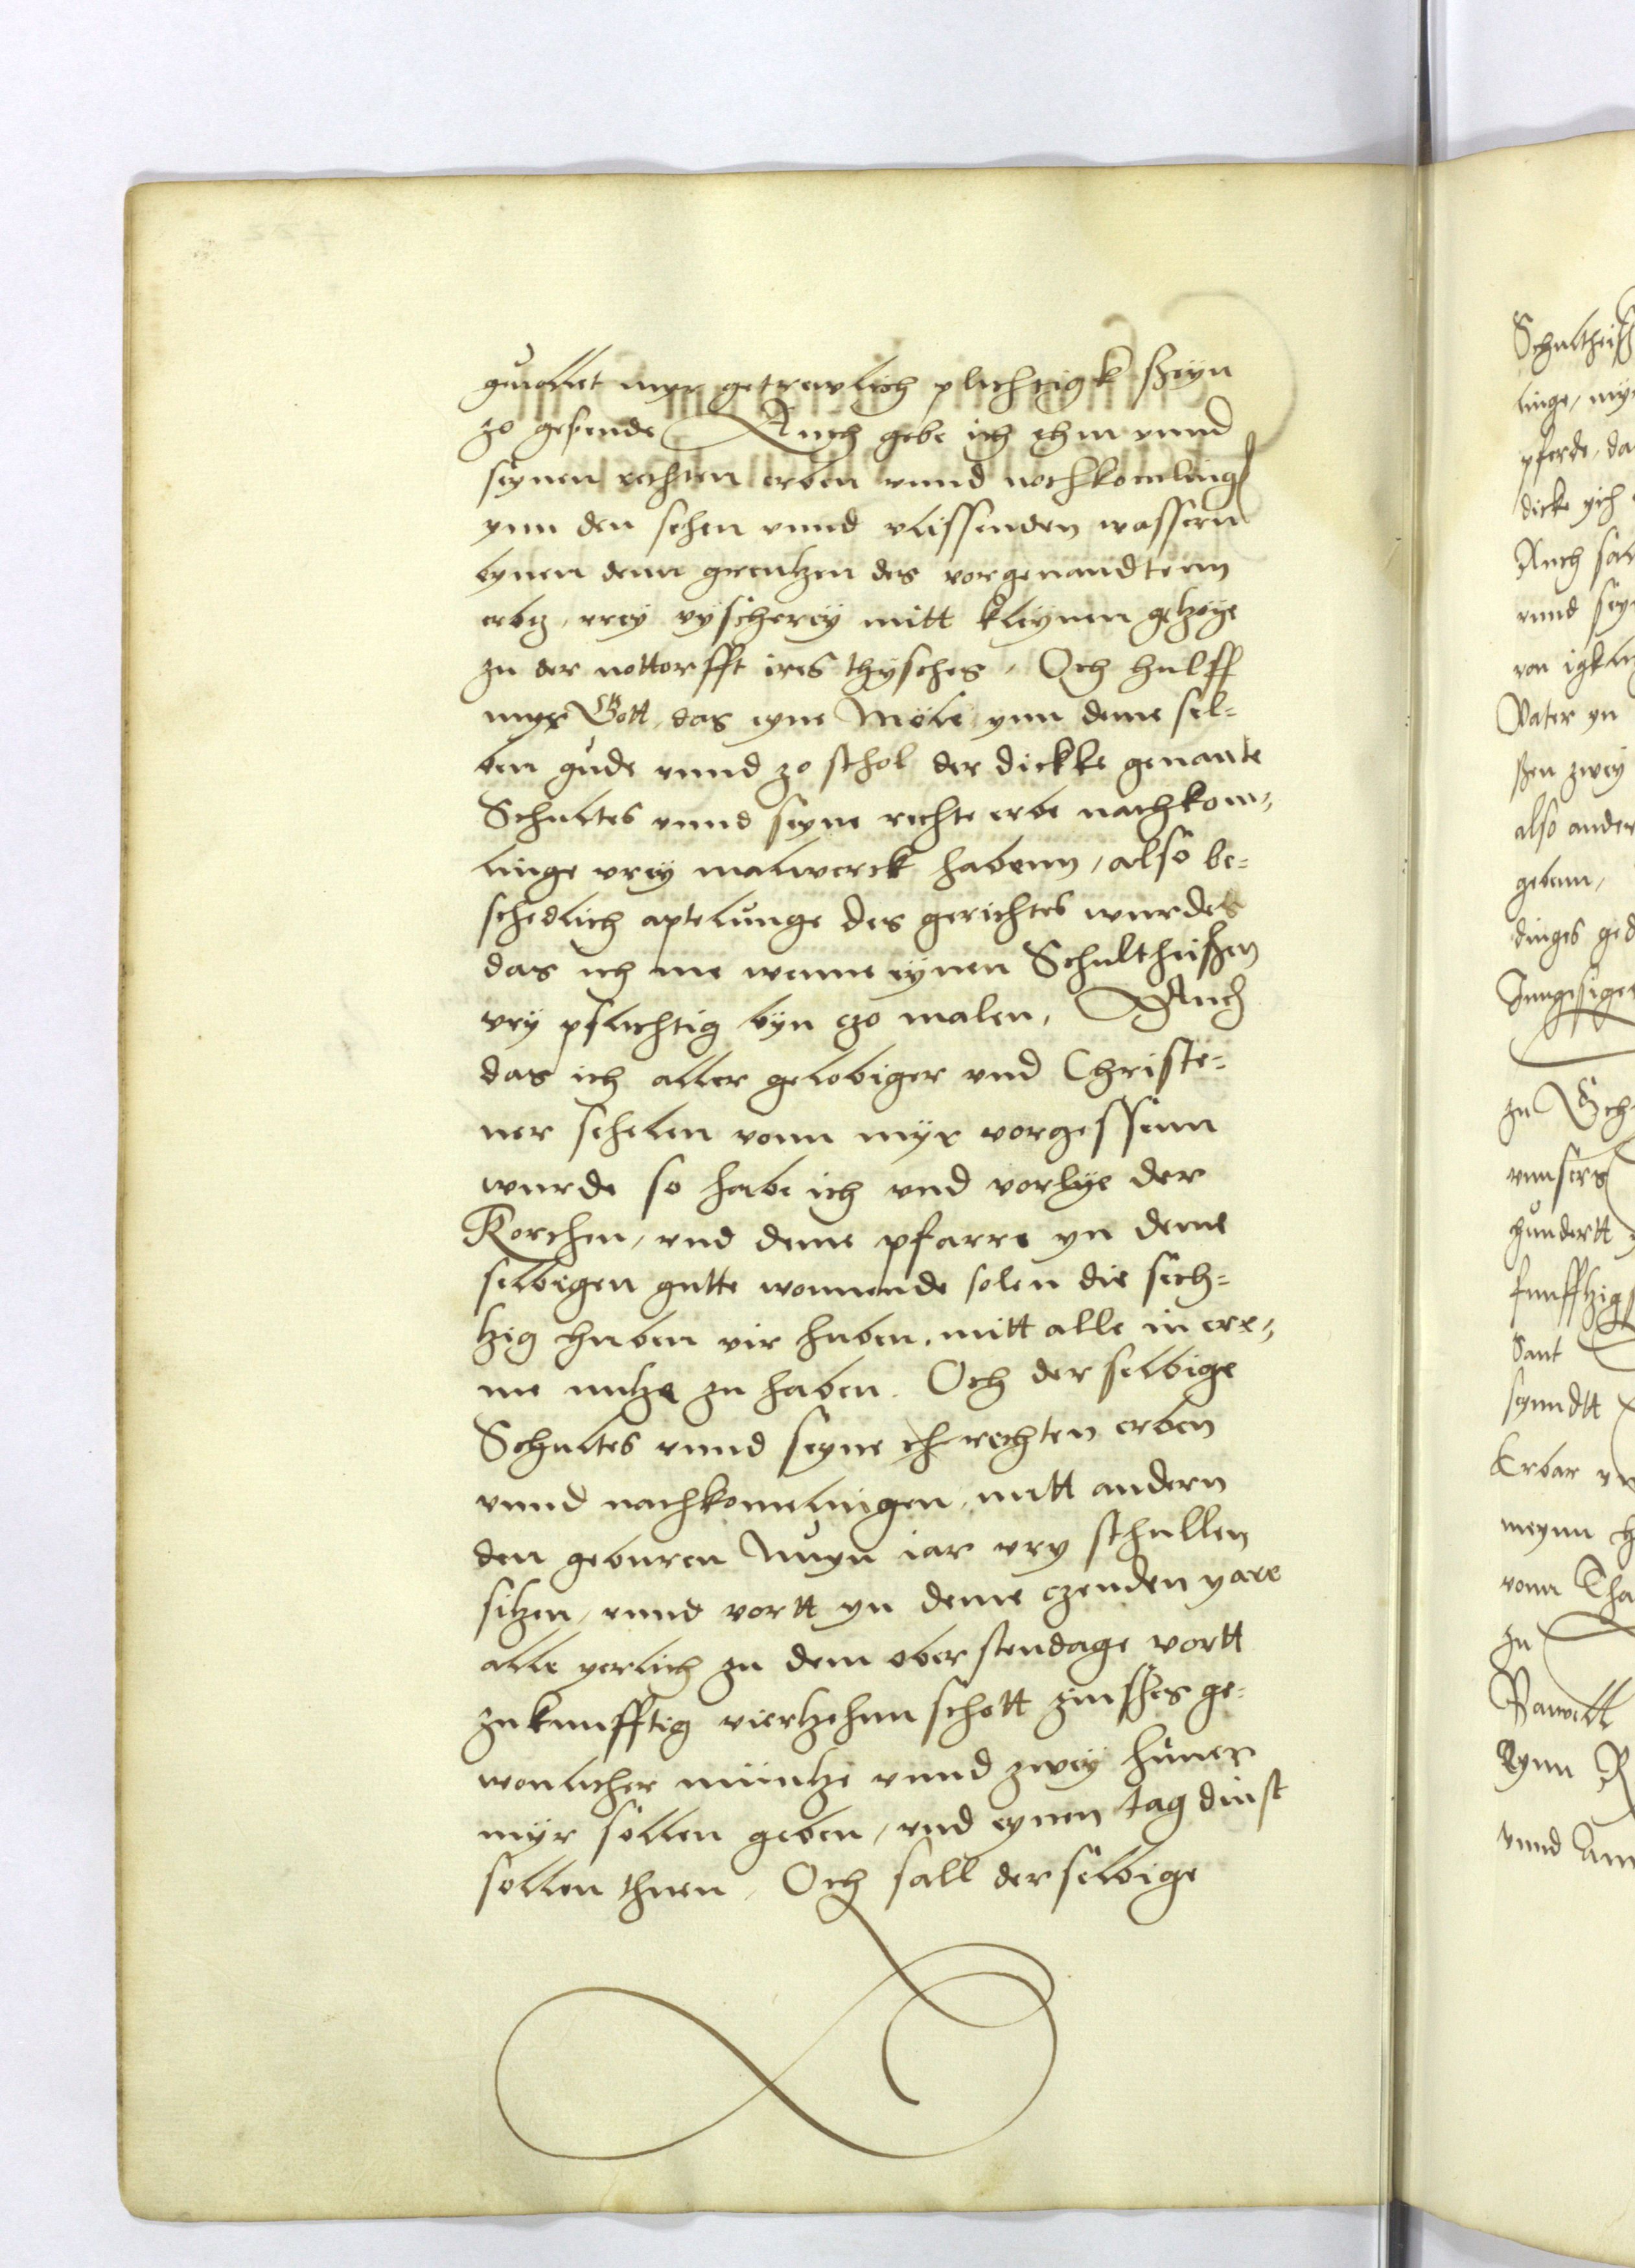 guollet myr getrewlich plichtigk ßeyn
zo gesende Auch gebe ich ehm vnnd
seynen rechten erben vnnd nochkomling
ynn den sehen vnnd vlissenden wassern
bynen denn grentzen des vorgenandtenn
erbtz, vrey vyscherey mitt kleynen getzoye
zu der nottorfft ires thysches, Och hulff
myr Gott, das eyne Möle ynn deme sel=
ben gude vnnd zo schol der dickke genante
Schultes vnnd seyne rechte erbe nachkom=
linge vrey malwerck habenn, also be=
schedlich aptelunge des gerichtes wurdes
das ich me wenne eynen Schultheißen
vry pflichtig byn czo malen, Auch
das ich aller gelobiger vnd Christe=
ner sehelen vonn myr vorgessenn
wurde so habe ich vnd vorlye der
Korchen, vnd deme pfarre yn deme
selbigen gutte wonnende solen die sech=
tzig huben vir huben, mitt alle in ere=
me nutze zu haben. Och der selbige
Schultes vnnd seyne rechten erben
vnnd nachkomelingen, mitt andern
den geburen Nuyn iar vry schullen
sitzen, vnnd vortt yn deme czenden yare
alle yerlich zu dem obersten dage vortt
zukunfftig viertzehnn schott zinßes ge=
wonlicher müntze vnnd zwey hüner
myr sollen geben, vnd eynen tag dinst
sollen thuen, Och sall der selbige
Schultheiß
linge, my
pferde, da
dicke yich
Auch sal
vnnd sey
von igkli
Vater yn
ßen zwey
also ander
gebenn,
dinges ged
zu
vnnsers
hundertt
funfftzig
Sant
seynndtt
Erbar vn
meynn h
vonn Tha
zu
vnnd